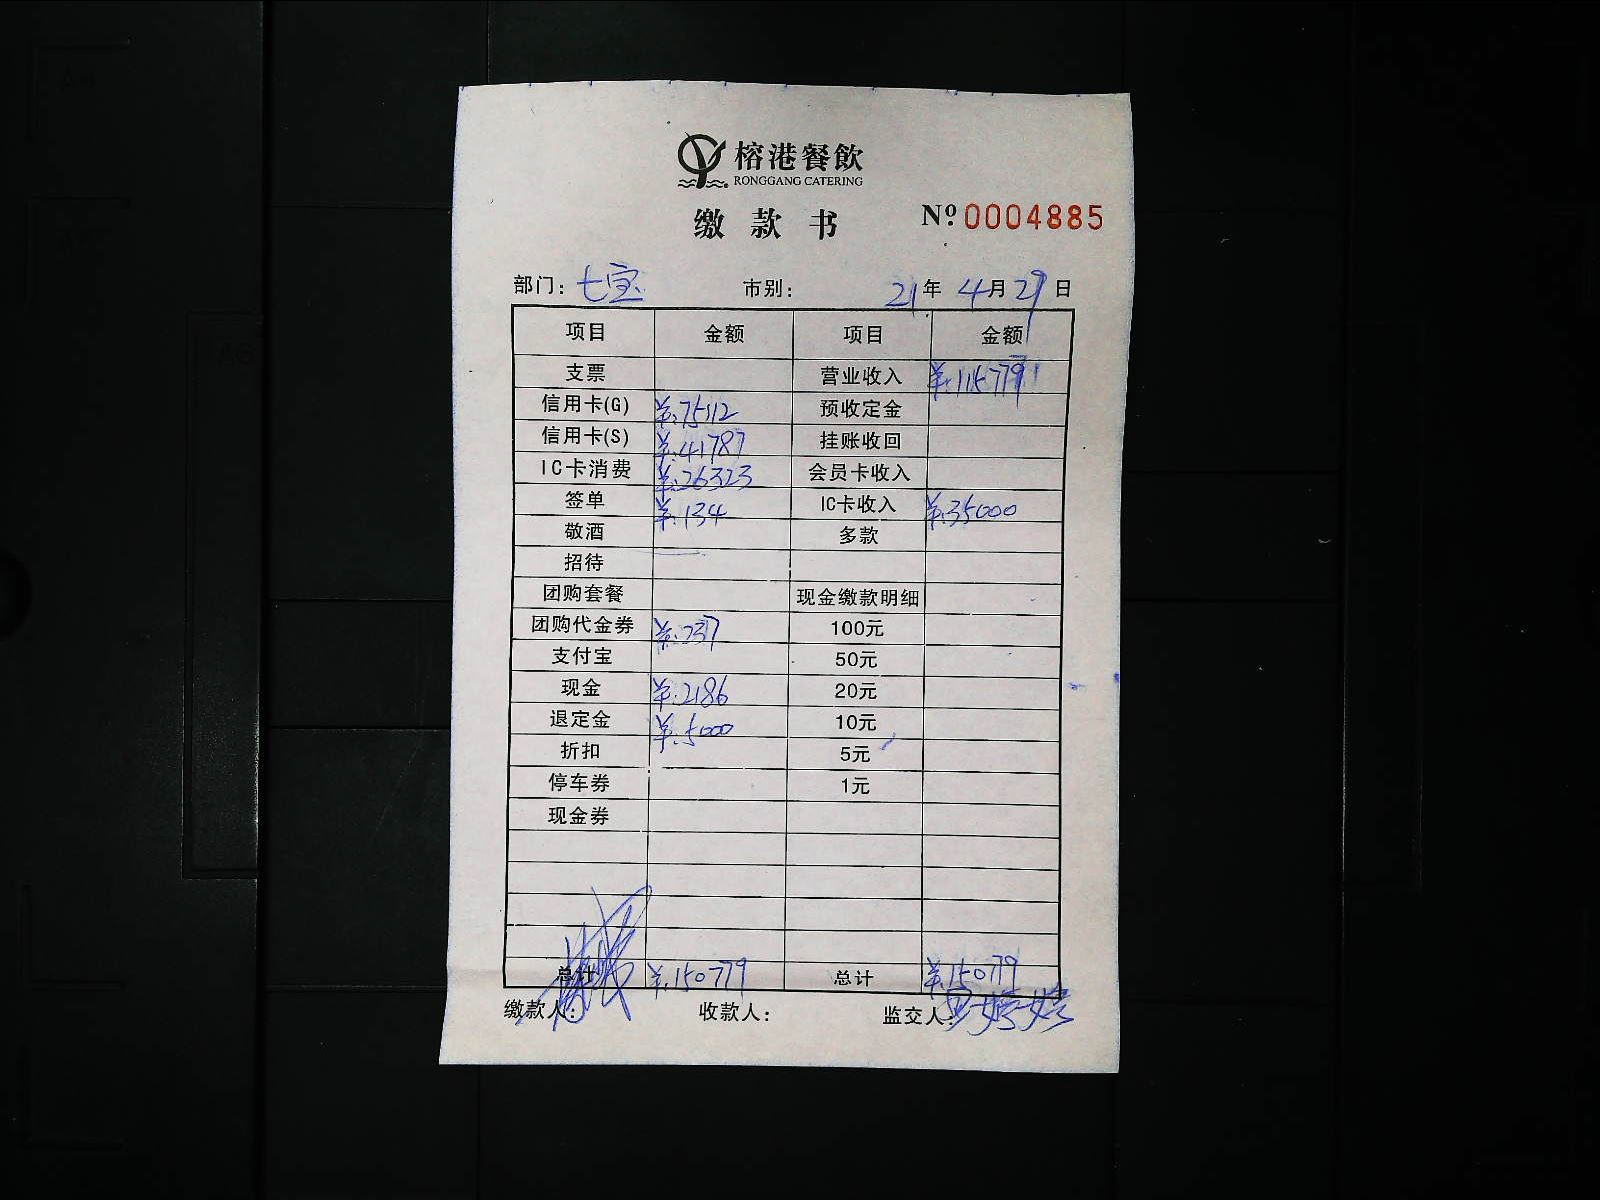 榕港餐飲
RONGGANG CATERING
缴款书 Nº 0004885
部门：七宝 市别： 21年 4月 29日
项目 金额 项目 金额
支票 营业收入 ¥:115779
信用卡(G) ¥:75112 预收定金
信用卡(S) ¥:41787 挂账收回
IC卡消费 ¥:26323 会员卡收入
签单 ¥:134 IC卡收入 ¥:35000
敬酒 多款
招待
团购套餐 现金缴款明细
团购代金券 ¥:237 100元
支付宝 50元
现金 ¥:2186 20元
退定金 ¥:5000 10元
折扣 5元
停车券 1元
现金券
总计 ¥:150779 总计 ¥:150779
缴款人： 收款人： 监交人：